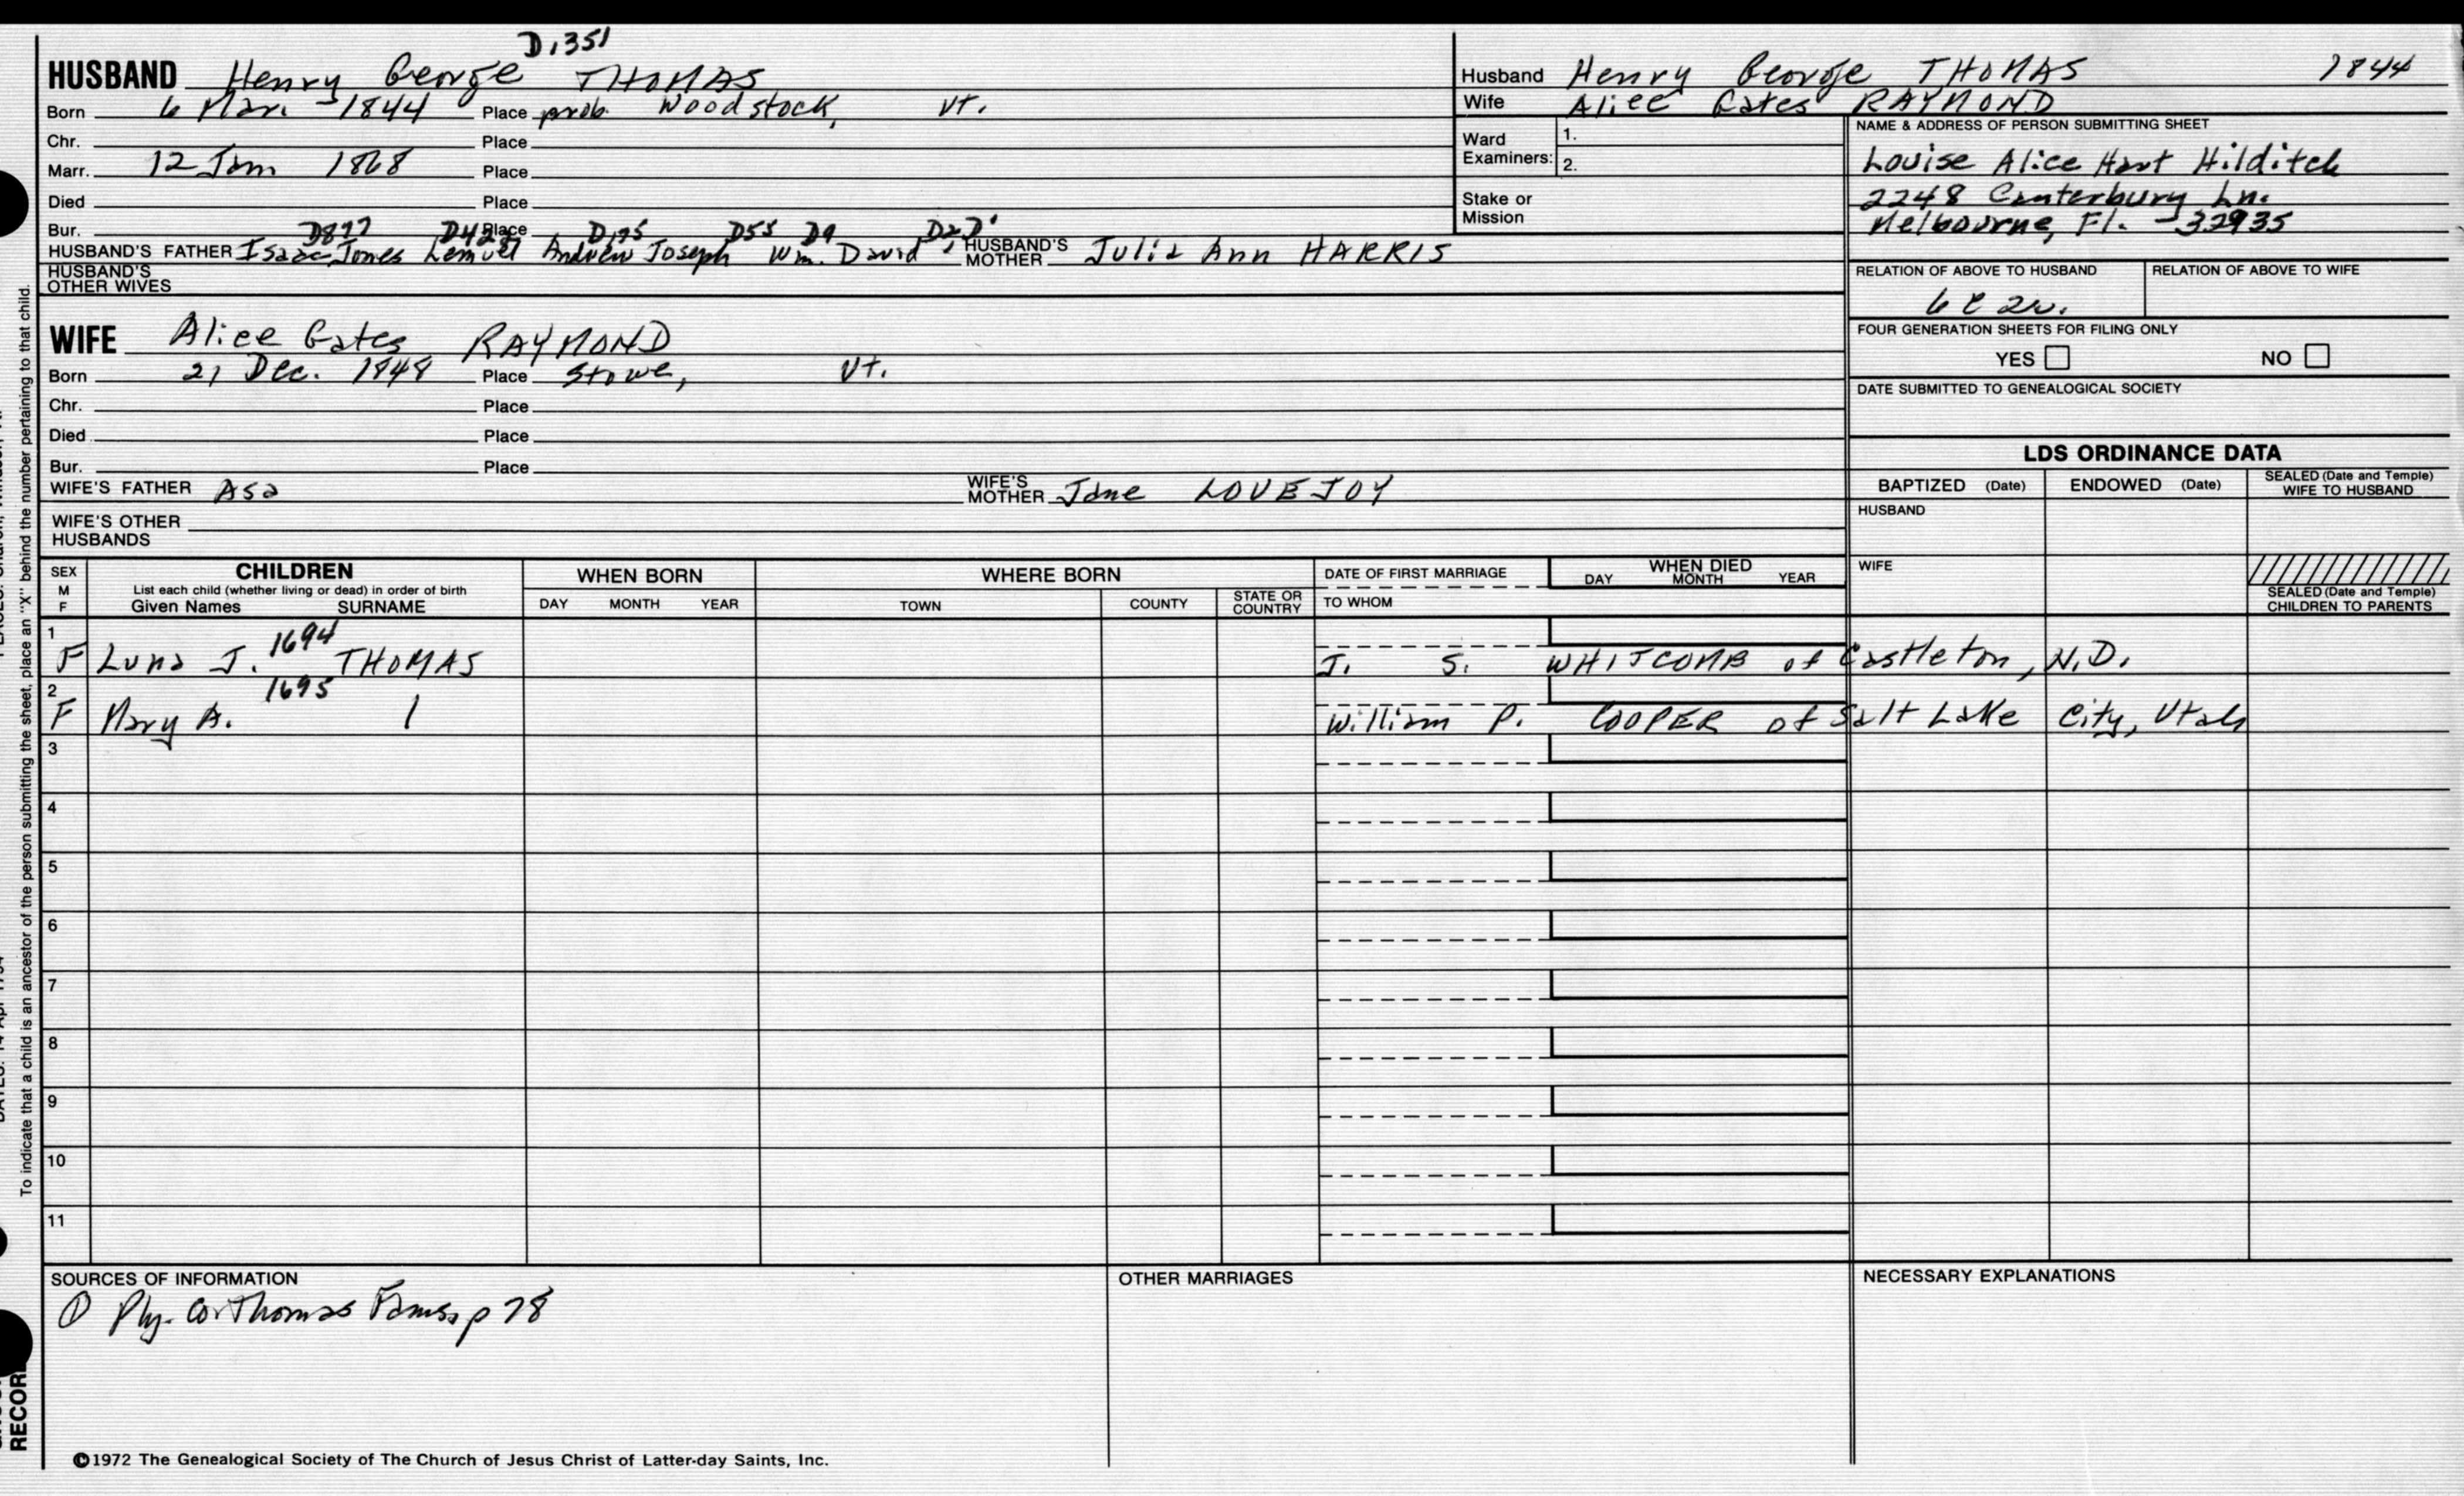 D1351
HUSBAND Henry George THOMAS
Born 6 Mar. 1844 Place prob. Woodstock, Vt.
Chr. Place
Marr. 12 Jan 1868 Place
Died Place
Bur. Place
D897 D423 D195 D55 D9 D2 D1
HUSBAND'S FATHER Isaac Jones Lemuel Andrew Joseph Wm. David HUSBAND'S MOTHER Julia Ann HARRIS
HUSBAND'S OTHER WIVES
Husband Henry George THOMAS 1844
Wife Alice Gates RAYMOND
Ward Examiners: 1.
2.
Stake or Mission
NAME & ADDRESS OF PERSON SUBMITTING SHEET
Louise Alice Hart Hilditch
2248 Canterbury Ln.
Melbourne, Fl. 32935
RELATION OF ABOVE TO HUSBAND RELATION OF ABOVE TO WIFE
6 C 2
FOUR GENERATION SHEETS FOR FILING ONLY
YES NO
DATE SUBMITTED TO GENEALOGICAL SOCIETY
WIFE Alice Gates RAYMOND
Born 21 Dec. 1848 Place Stowe, Vt.
Chr. Place
Died Place
Bur. Place
WIFE'S FATHER Asa WIFE'S MOTHER Jane LOVEJOY
WIFE'S OTHER HUSBANDS
LDS ORDINANCE DATA
BAPTIZED (Date) ENDOWED (Date) SEALED (Date and Temple) WIFE TO HUSBAND
HUSBAND
WIFE
SEALED (Date and Temple) CHILDREN TO PARENTS
SEX M F
CHILDREN
List each child (whether living or dead) in order of birth
Given Names SURNAME
WHEN BORN
DAY MONTH YEAR
WHERE BORN
TOWN COUNTY STATE OR COUNTRY
DATE OF FIRST MARRIAGE
TO WHOM
WHEN DIED
DAY MONTH YEAR
1 1694
F Luna J. THOMAS J. S. WHITCOMB of Castleton, N.D.
2 1695
F Mary A. William P. COOPER of Salt Lake City, Utah
3
4
5
6
7
8
9
10
11
SOURCES OF INFORMATION
① Ply. Co. Thomas Fams, p 78
OTHER MARRIAGES
NECESSARY EXPLANATIONS
©1972 The Genealogical Society of The Church of Jesus Christ of Latter-day Saints, Inc.
To indicate that a child is an ancestor of the person submitting the sheet, place an "X" behind the number pertaining to that child.